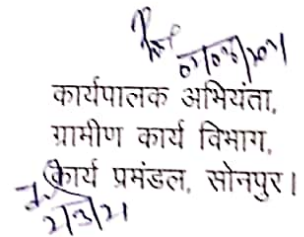 कार्यपालक अभियंता,
ग्रामीण कार्य विभाग,
कार्य प्रमंडल, सोनपुर।
2/3/21